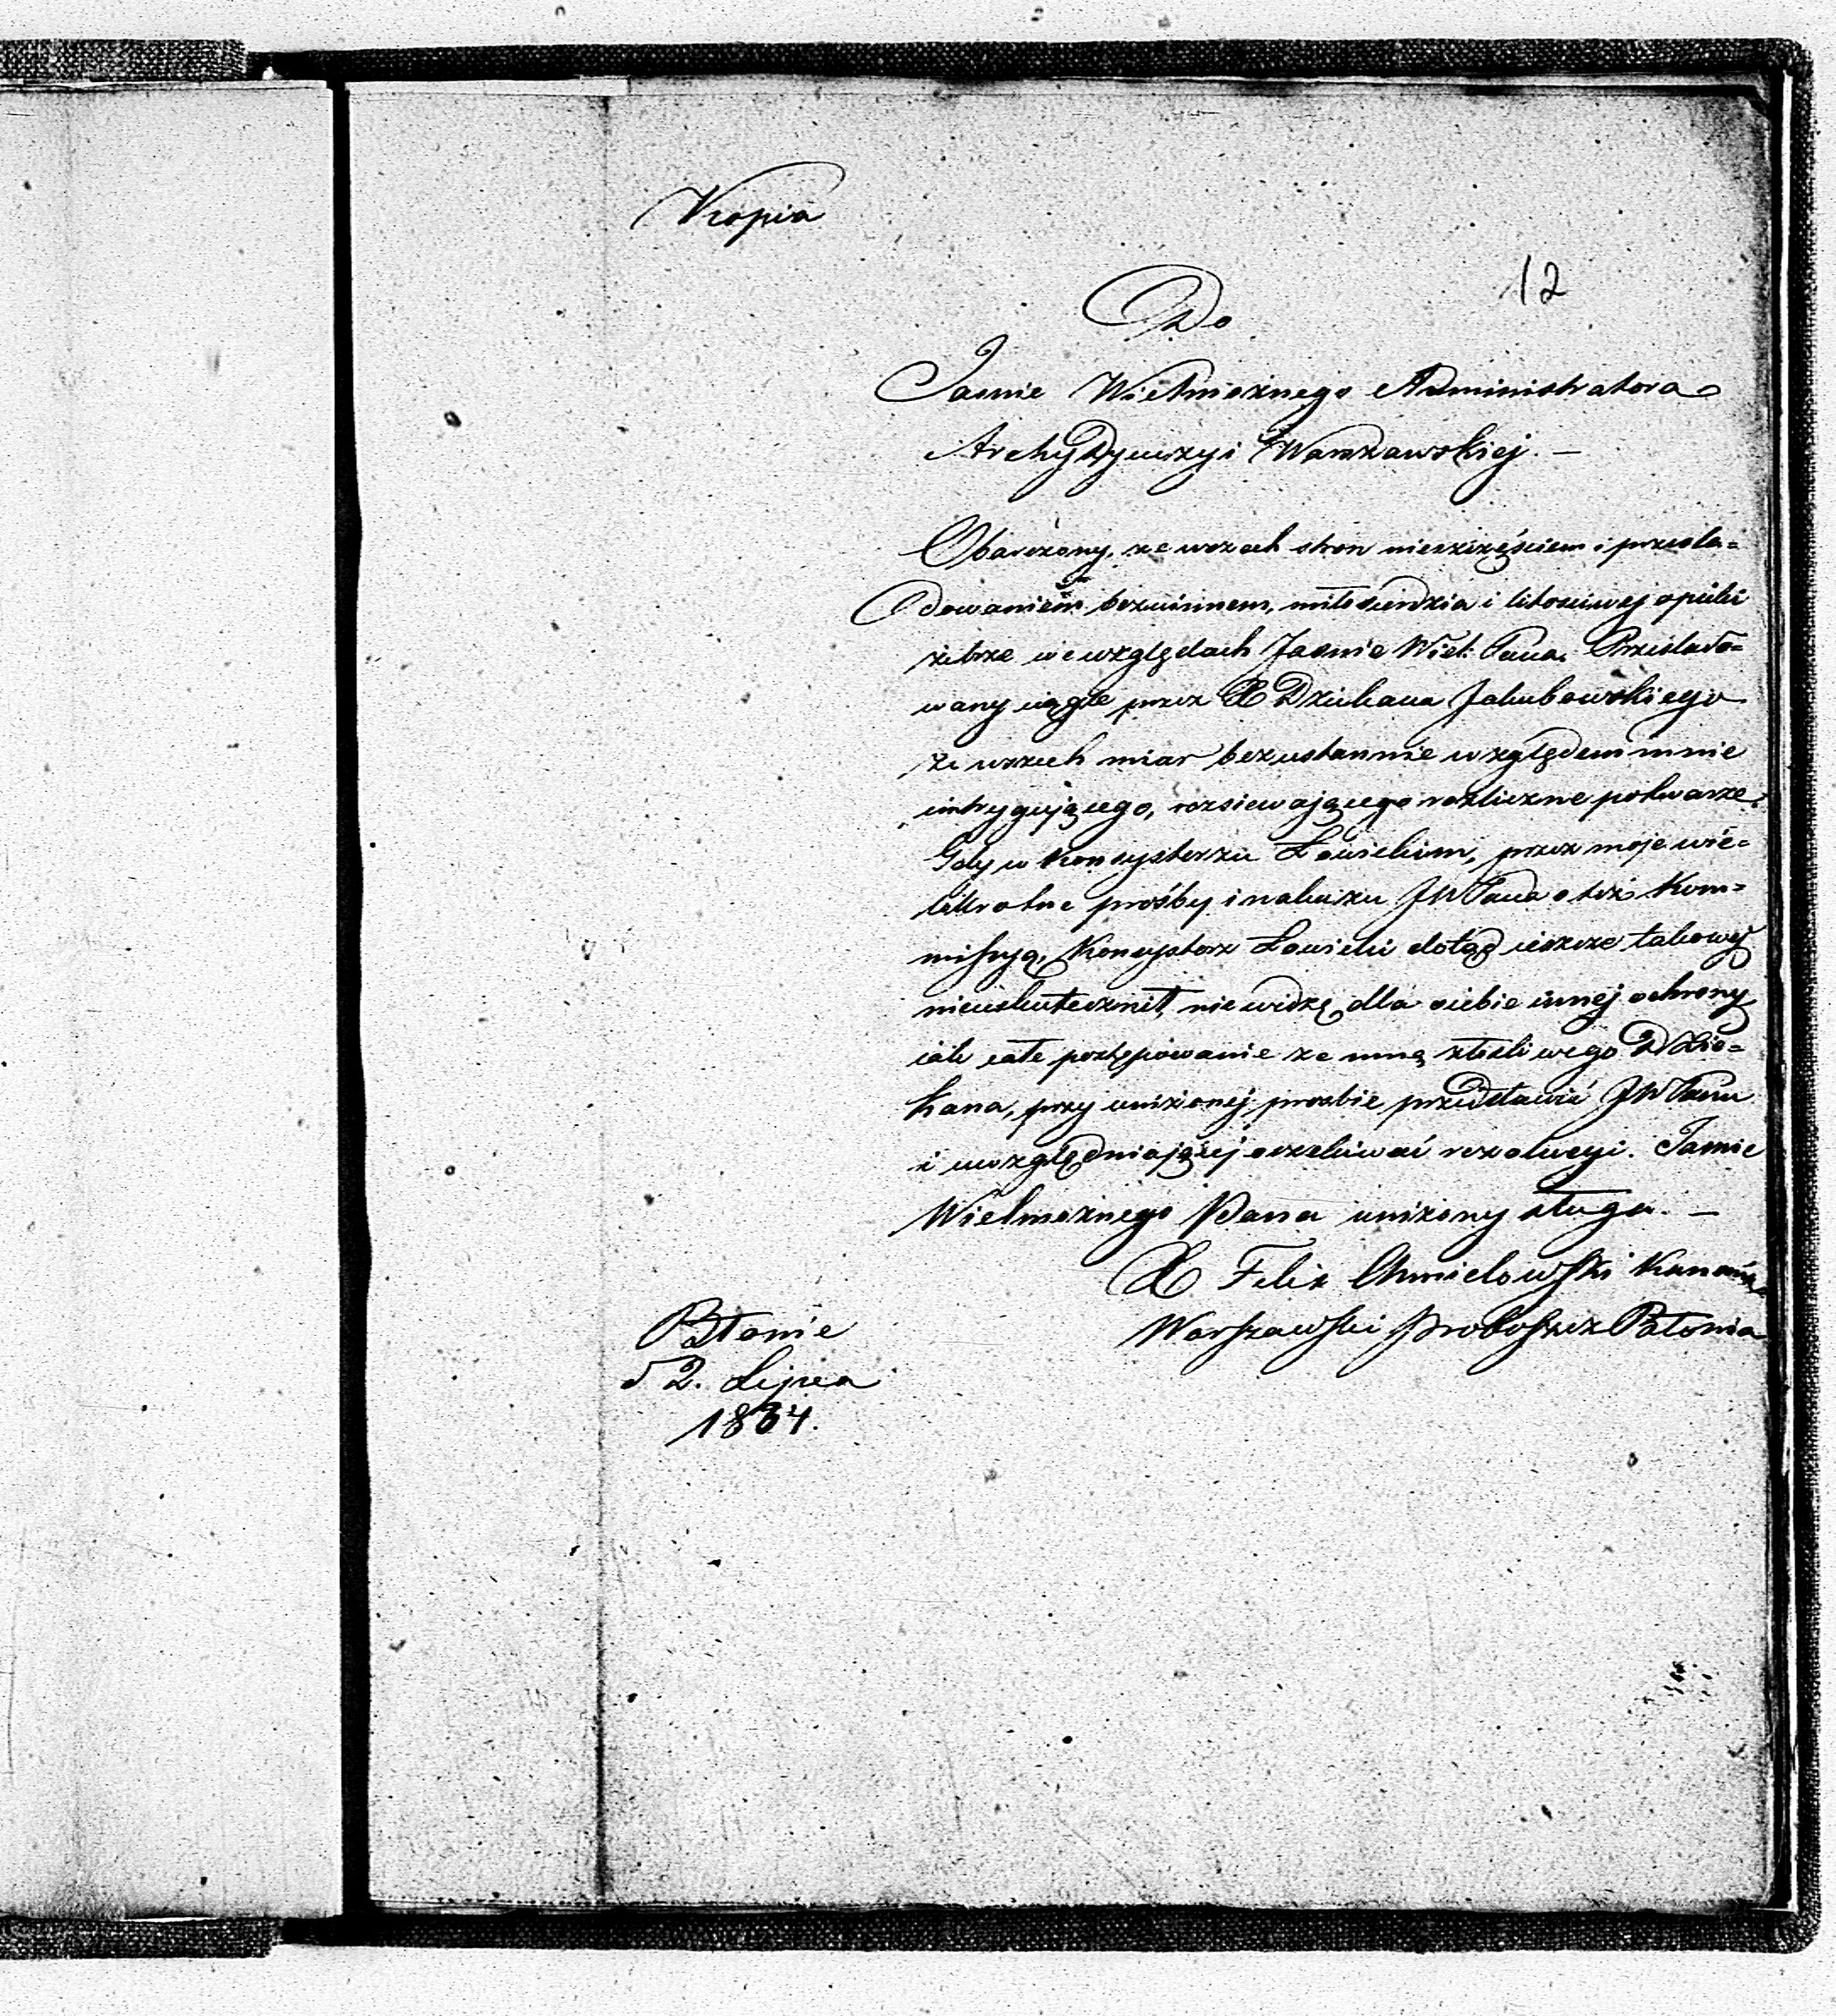 Kopia
12
Do
Jasnie Wielmożnego Administratora
ArchyDyecezyi Warszawskiej. —
Obarczony, ze wszech stron nieszczęściem i prześla=
dowaniem bezwinnem, miłosierdzia i litościwej opieki
żebrze we względach Jasnie Wiel: Pana. Prześlado=
wany ciągle przez X Dziekana Jakubowskiego
ze wszech miar bezustannie względem mnie
intrygującego, rozsiewającego rozliczne potwarze.
Gdy w Konsystorzu Łowickim, przez moje wie=
lokrotne prośby i nakazu JWPana o też Kom=
missyą, Konsystorz Łowicki dotąd ieszcze takowej
nieuskutecznił, nie widzę dla siebie innej ochrony
iak całe postępowanie ze mną złośliwego Dzie=
kana, przy uniżonej prosbie przedstawić JWPanu
i uwzględniającej oczekiwać rezolucyi. Jasnie
Wielmożnego Pana uniżony sługa. —
X Felix Chmielowski Kanonik
Warszawski Proboszcz Błonia
Błonie
d 2. Lipca
1834.